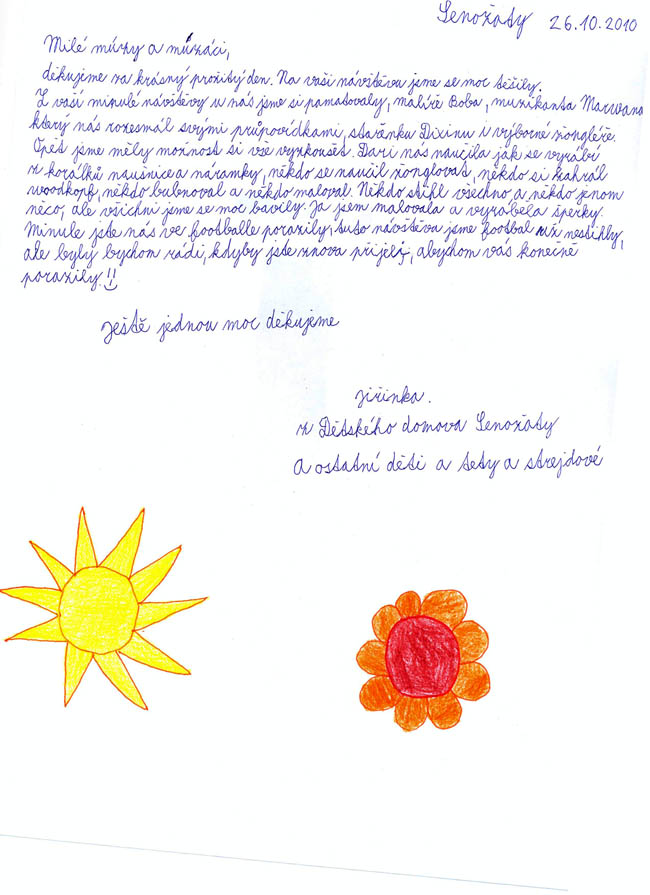 Senožaty 26.10.2010
Milé múzy a múzáci,
děkujeme za krásný prožitý den. Na vaši návštěvu jsme se moc těšily.
Z vaší minulé návštěvy u nás jsme si pamatovaly, malíře Boba, muzikanta Marwana
který nás rozesmál svými průpovídkami, stařenku Dixinu i výborné žongléře.
Opět jsme měly možnost si vše vyzkoušet. Dari nás naučila jak se vyrábí
z korálků naušnice a náramky, někdo se naučil žonglovat, někdo si zahrál
woodkopf, někdo bubenoval a někdo maloval. Někdo stihl všechno a někdo jenom
něco, ale všichni jsme se moc bavily. Ja jsem malovala a vyráběla šperky.
Minule jste nás ve footballe porazily, tuto návštěva jsme footbal už nestihly,
ale byly bychom rádi, kdyby jste znova přijeli, abychom vás konečně
porazily!!
Ještě jednou moc děkujeme
Jiřinka.
z Dětského domova Senožaty
a ostatní děti a tety a strejdové